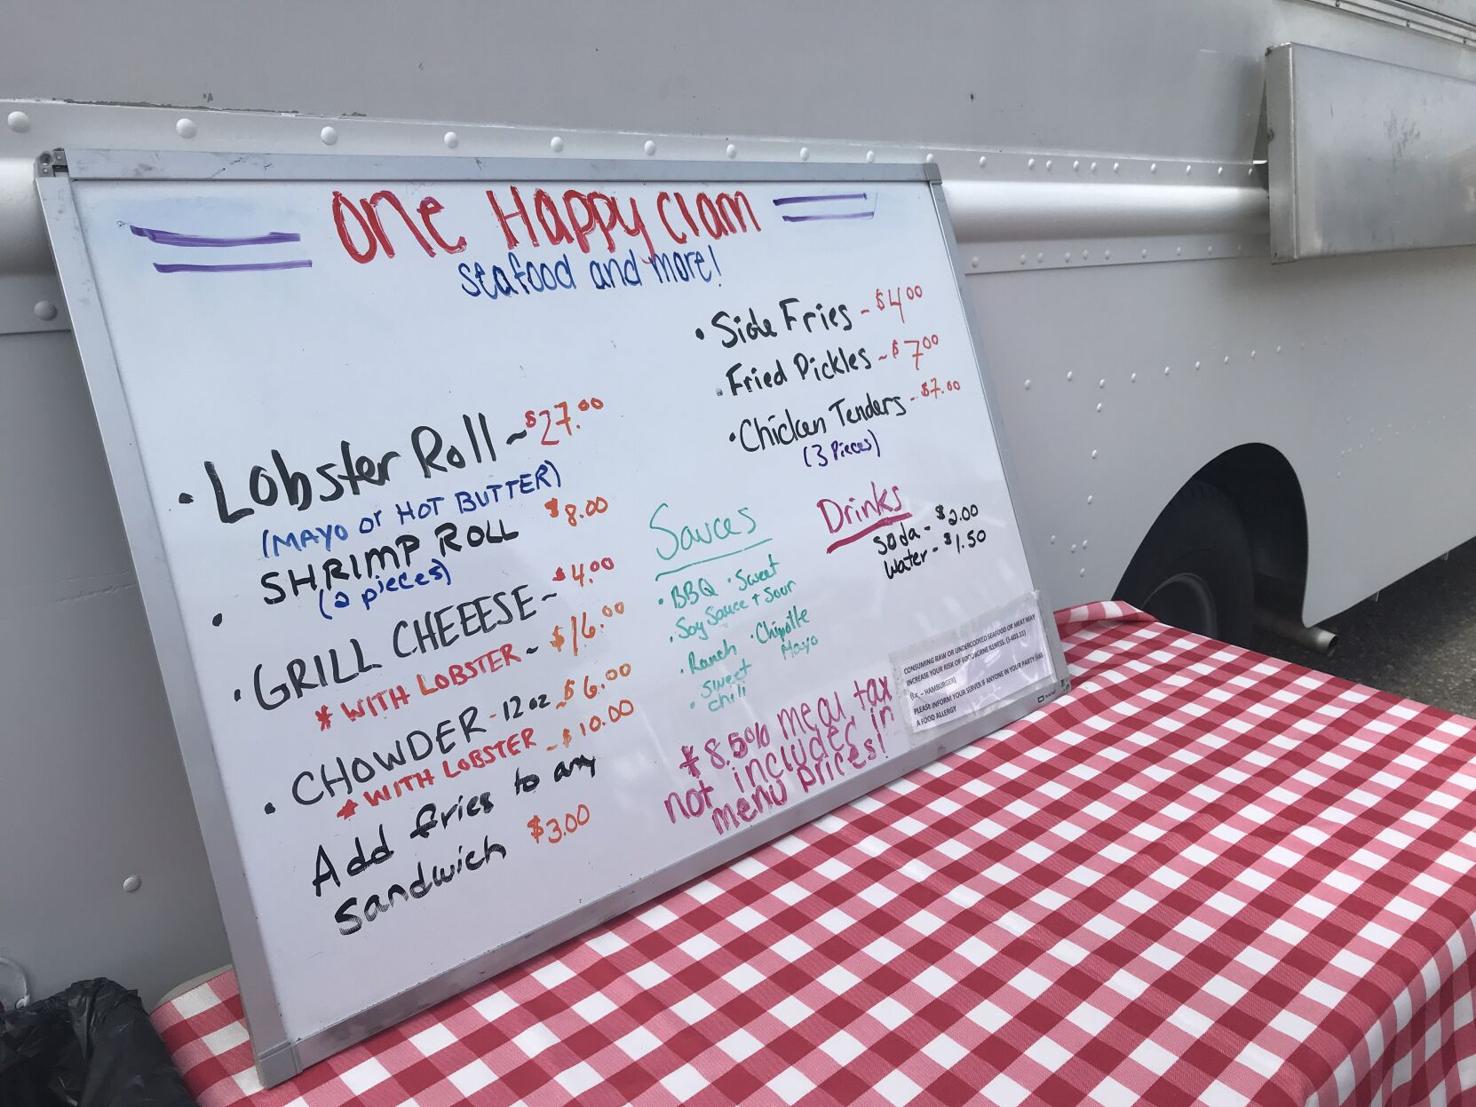 One Happy Clam
seafood and more!
• Lobster Roll ~ $27.00
(MAYO or HOT BUTTER)
• SHRIMP ROLL $8.00
(2 pieces)
• GRILL CHEEESE ~ $4.00
* WITH LOBSTER ~ $16.00
• CHOWDER - 12oz ~ $6.00
* WITH LOBSTER - $10.00
Add fries to any
Sandwich $3.00
• Side Fries - $4.00
• Fried Pickles ~ $7.00
• Chicken Tenders - $7.00
(3 Pieces)
Sauces
• BBQ • Sweet
• Soy Sauce + Sour
• Ranch • Chipotle
Mayo
• Sweet
chili
Drinks
Soda - $2.00
Water - $1.50
* 8.5% meal tax
not included in
menu prices!
CONSUMING RAW OR UNDERCOOKED SEAFOOD OR MEAT MAY
INCREASE YOUR RISK OF FOODBORNE ILLNESS. (3-603.11)
(I.e. – HAMBURGER)
PLEASE INFORM YOUR SERVER IF ANYONE IN YOUR PARTY HAS
A FOOD ALLERGY